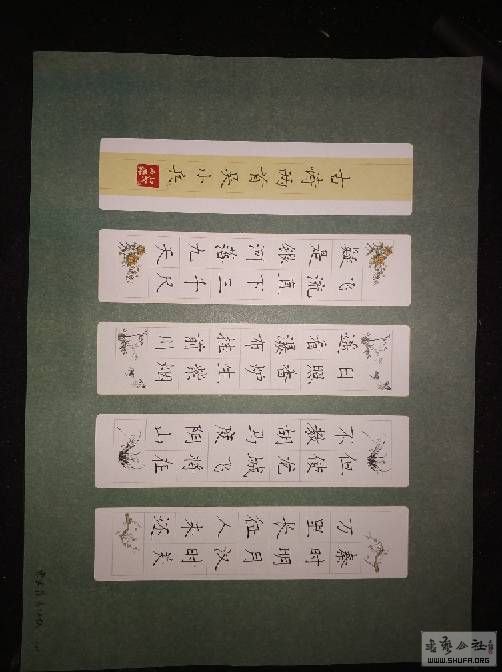 秦时明月汉时关
万里长征人未还
但使龙城飞将在
不教胡马度阴山
日照香炉生紫烟
遥看瀑布挂前川
飞流直下三千尺
疑是银河落九天
古诗两首 吴小
書藝公社
WWW.SHUFA.ORG